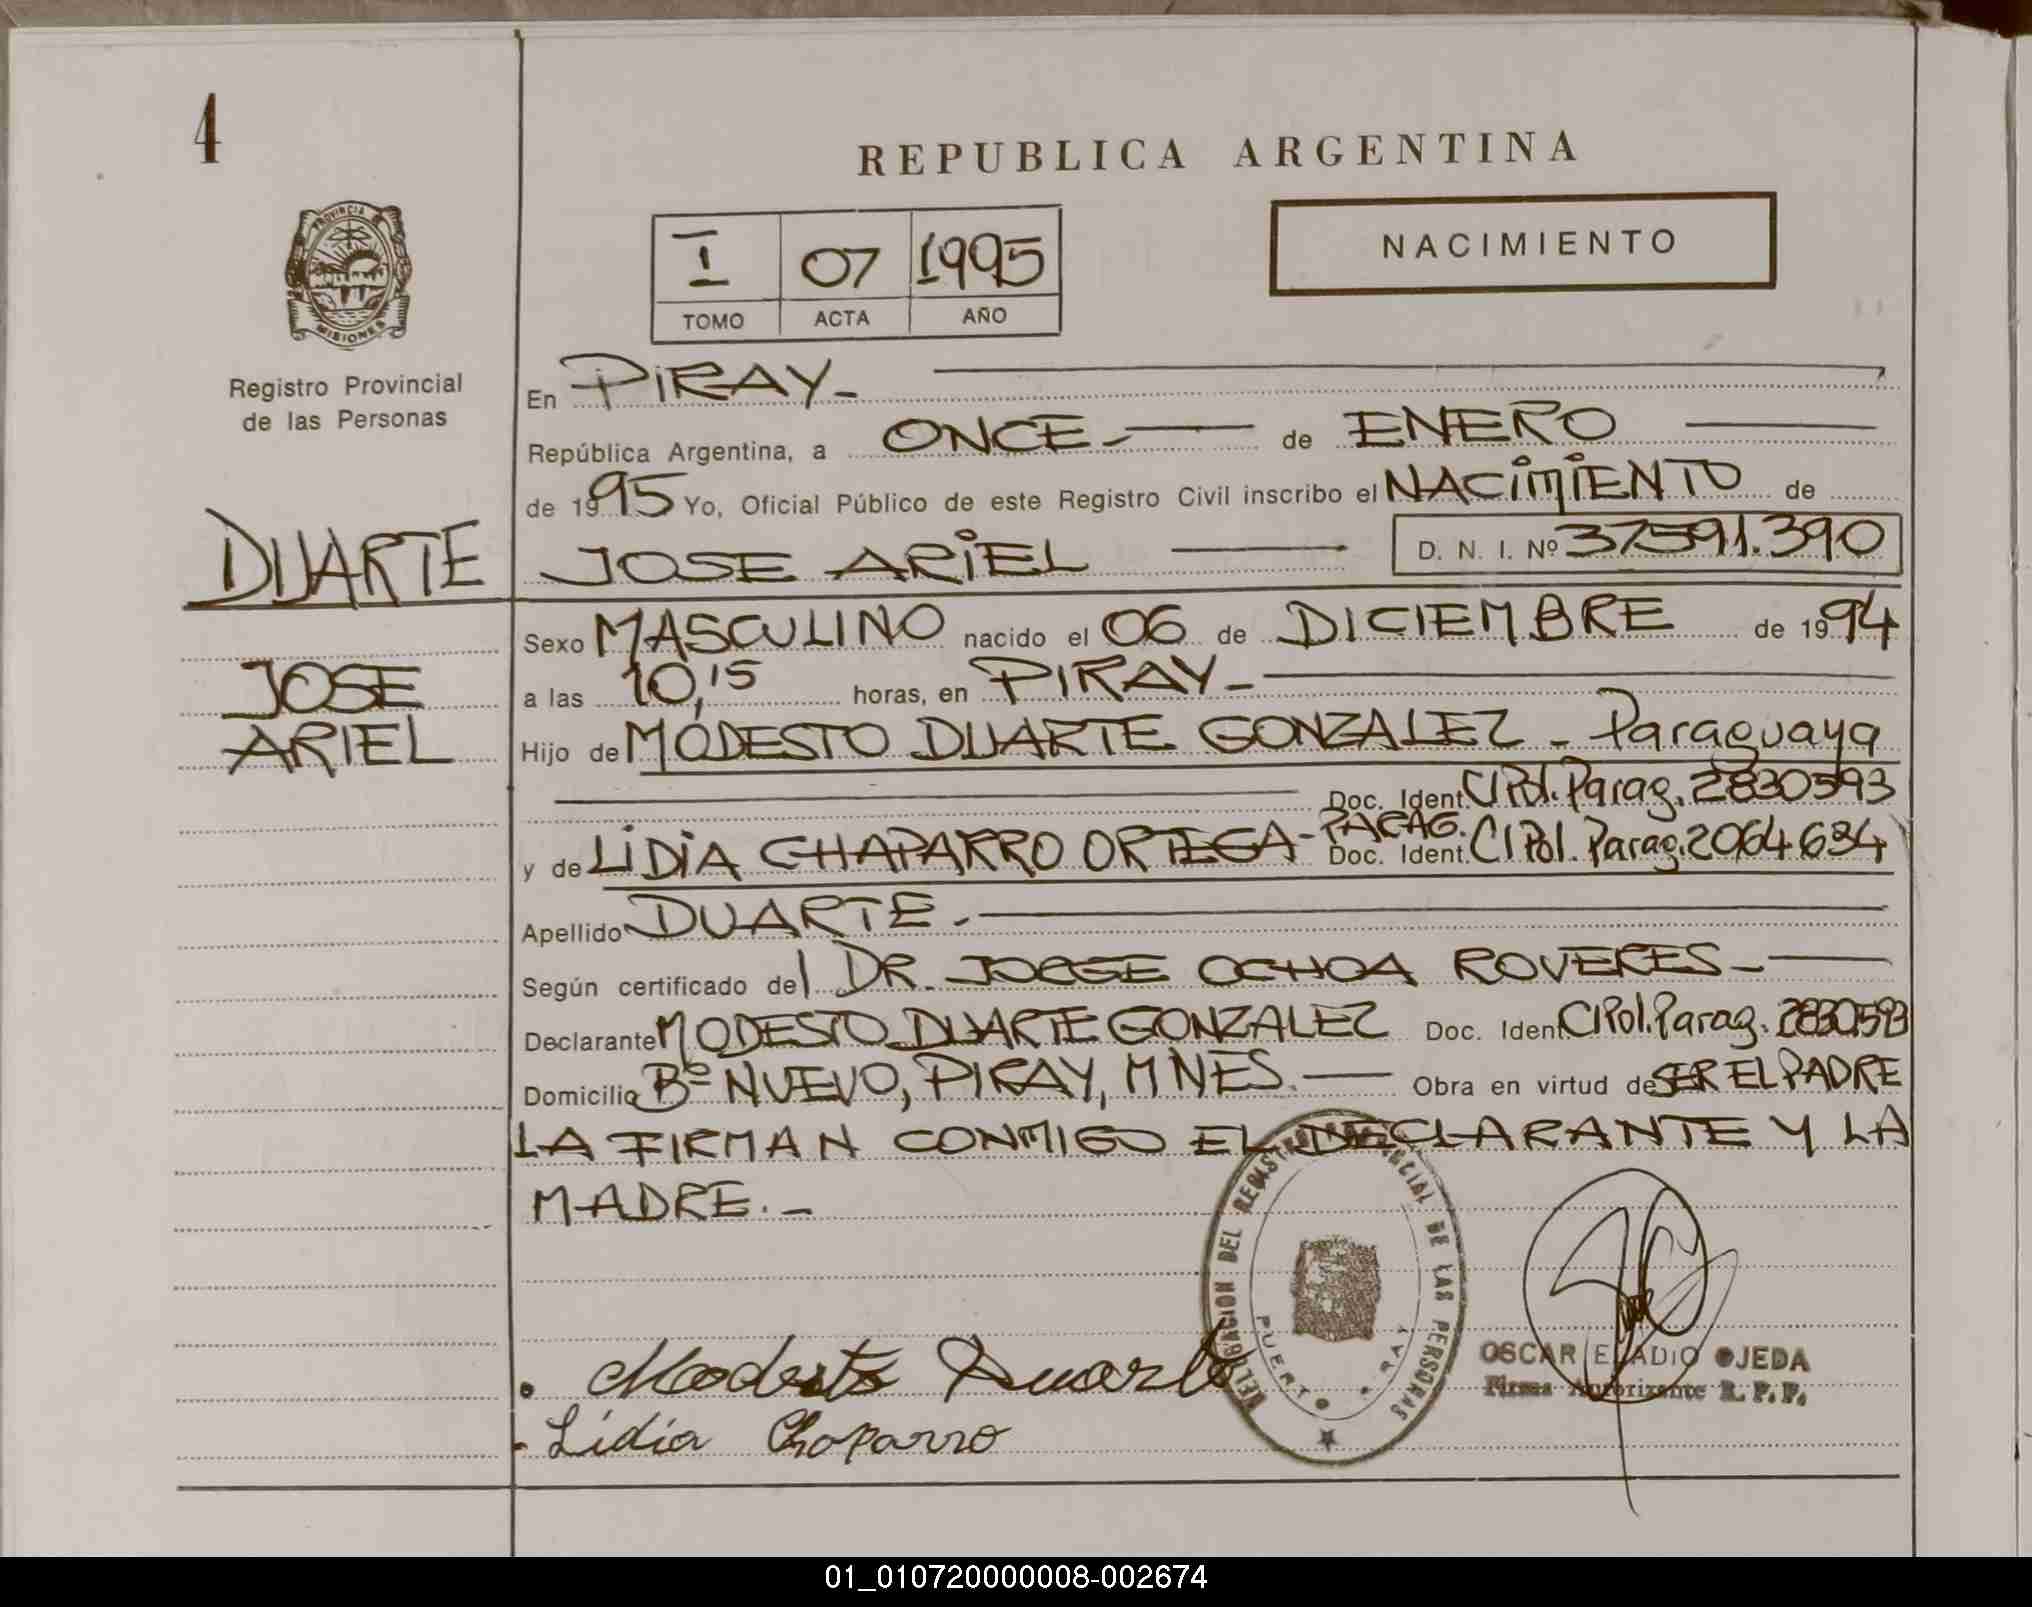 4
REPUBLICA ARGENTINA
PROVINCIA DE
MISIONES
Registro Provincial
de las Personas
I 07 1995
TOMO ACTA AÑO
NACIMIENTO
En PIRAY -
República Argentina, a ONCE.- de ENERO
de 1995 Yo, Oficial Público de este Registro Civil inscribo el NACIMIENTO de
DUARTE
JOSE ARIEL D. N. I. Nº 37591.390
Sexo MASCULINO nacido el 06 de DICIEMBRE de 1994
JOSE
ARIEL
a las 10,15 horas, en PIRAY -
Hijo de MODESTO DUARTE GONZALEZ - Paraguaya
Doc. Ident. CI Pol. Parag. 2830593
y de LIDIA CHAPARRO ORTEGA - PARAG. Doc. Ident. CI Pol. Parag. 2064634
Apellido DUARTE.-
Según certificado del DR. JORGE OCHOA ROVERES -
Declarante MODESTO DUARTE GONZALEZ Doc. Ident CI Pol. Parag. 2830593
Domicilio Bº NUEVO, PIRAY, MNES. Obra en virtud de SER EL PADRE
LA FIRMAN CONMIGO EL DECLARANTE Y LA
MADRE. -
DELEGACION DEL REGISTRO PROVINCIAL DE LAS PERSONAS
PUERTO PIRAY
Modesto Duarte
Lidia Chaparro
OSCAR ELADIO OJEDA
Firma Autorizante R. P. P.
01_010720000008-002674